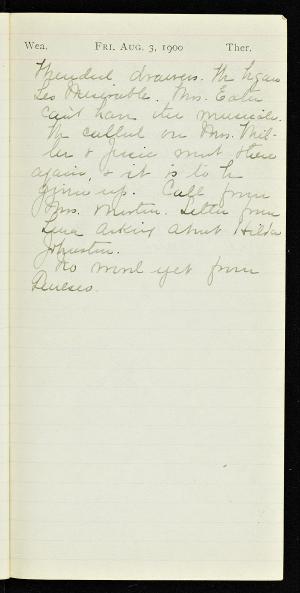 Wea. FRI. AUG. 3, 1900 Ther.
Mended drawers. We began
Les Miserable. Mrs. Eaton
can't have the musicale.
We called on Mrs. Mil-
ler & Jessie went there
again, & it is to be
given up. Call from
Mrs. Martin. Letter from
Lena asking about Hilda
Johnston.
No word yet from